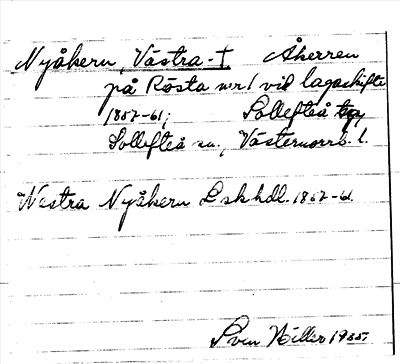 Nyåkern, Västra - † Åkerren
på Rösta nr 1 vid lagaskifte
1857-61; Sollefteå
Sollefteå sn., Västernorrl. l.
Westra Nyåkern Lskhdl. 1857-61.
Sven Hiller 1935.